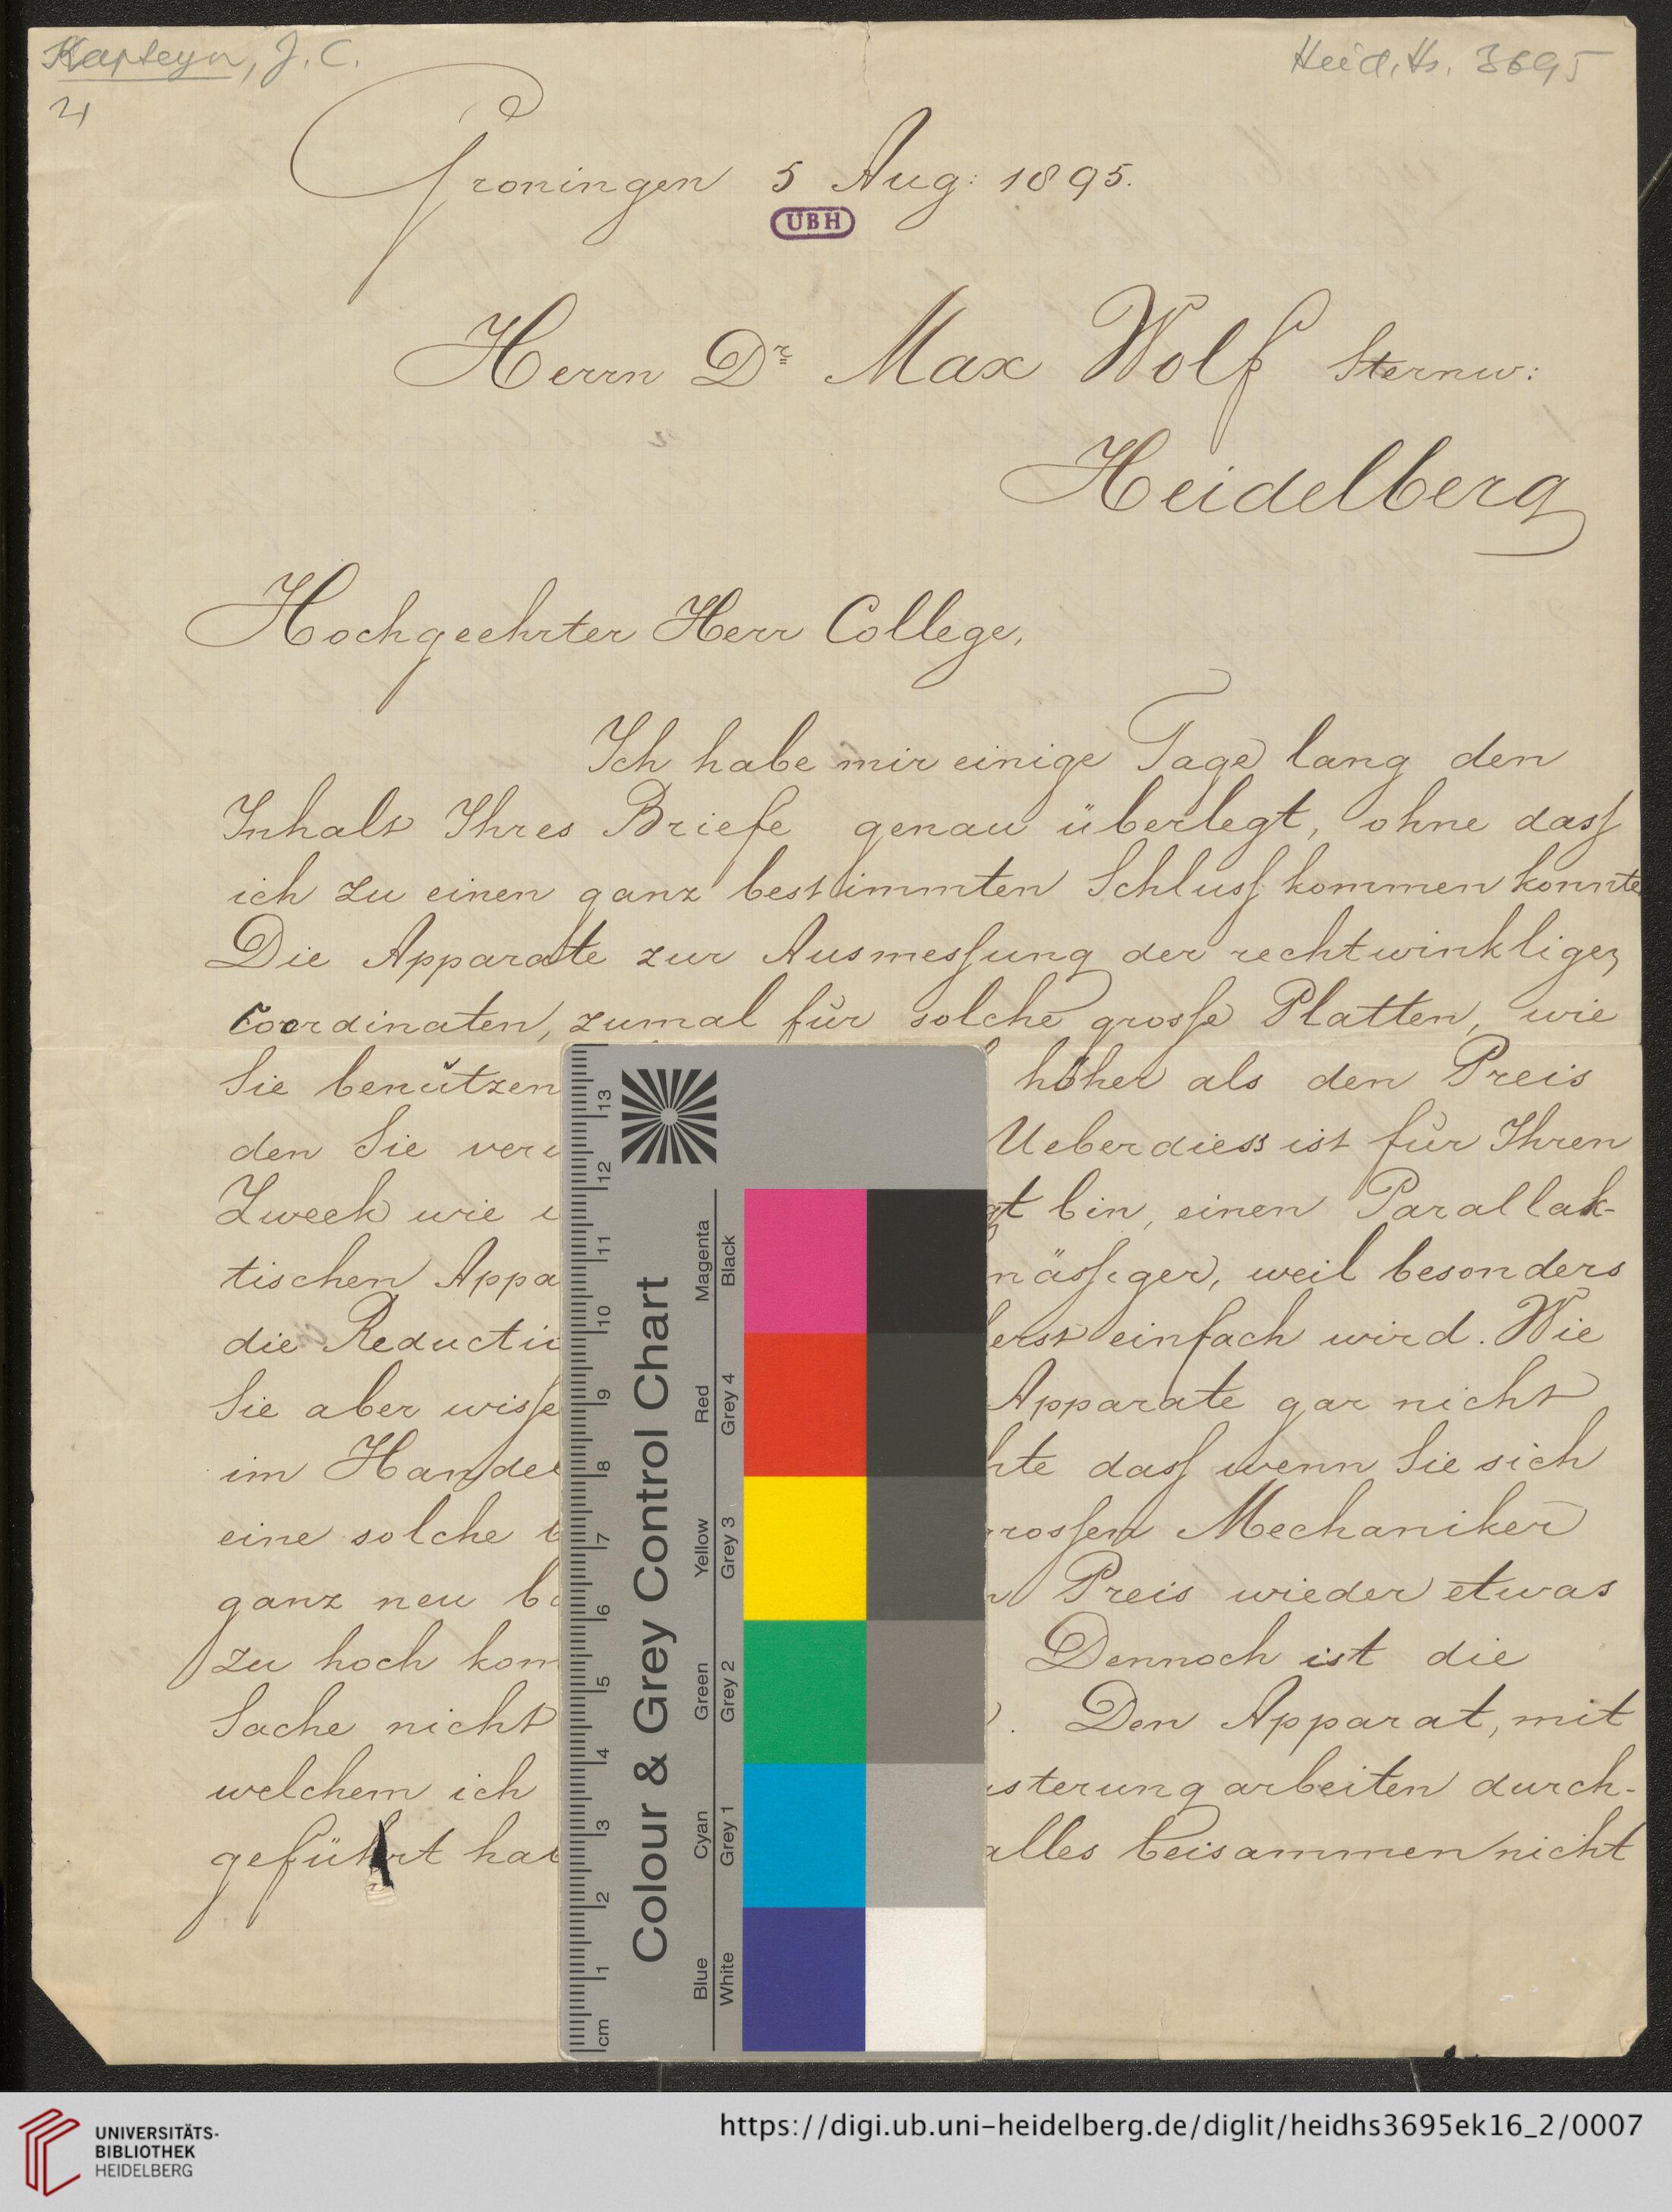 Kapteyn, J. C.
Heid. Hs. 3695
4
Groningen 5 Aug: 1895.
UBH
Herrn Dr Max Wolf Sternw:
Heidelberg
Hochgeehrter Herr College,
Ich habe mir einige Tage lang den
Inhalt Ihres Briefe genau überlegt, ohne dass
ich zu einen ganz bestimmten Schluss kommen konnte
Die Apparate zur Ausmessung der rechtwinkligen
Coordinaten, zumal für solche grosse Platten, wie
Sie benützen höher als den Preis
den Sie Ueberdiess ist für Ihren
Zweck wie bin, einen Parallak-
tischen Appa weil besonders
die Reducti einfach wird. Wie
Sie aber wisse Apparate gar nicht
im Handel dass wenn Sie sich
eine solche Mechaniker
ganz neu Preis wieder etwas
zu hoch kom Dennoch ist die
Sache nicht Den Apparat, mit
welchem ich sterungarbeiten durch-
geführt hab alles beisammen nicht
Colour & Grey Control Chart
Magenta
Black
Red
Grey 4
Yellow
Grey 3
Green
Grey 2
Cyan
Grey 1
Blue
White
13
12
11
10
9
8
7
6
5
4
3
2
1
cm
UNIVERSITÄTS-
BIBLIOTHEK
HEIDELBERG
https://digi.ub.uni-heidelberg.de/diglit/heidhs3695ek16_2/0007